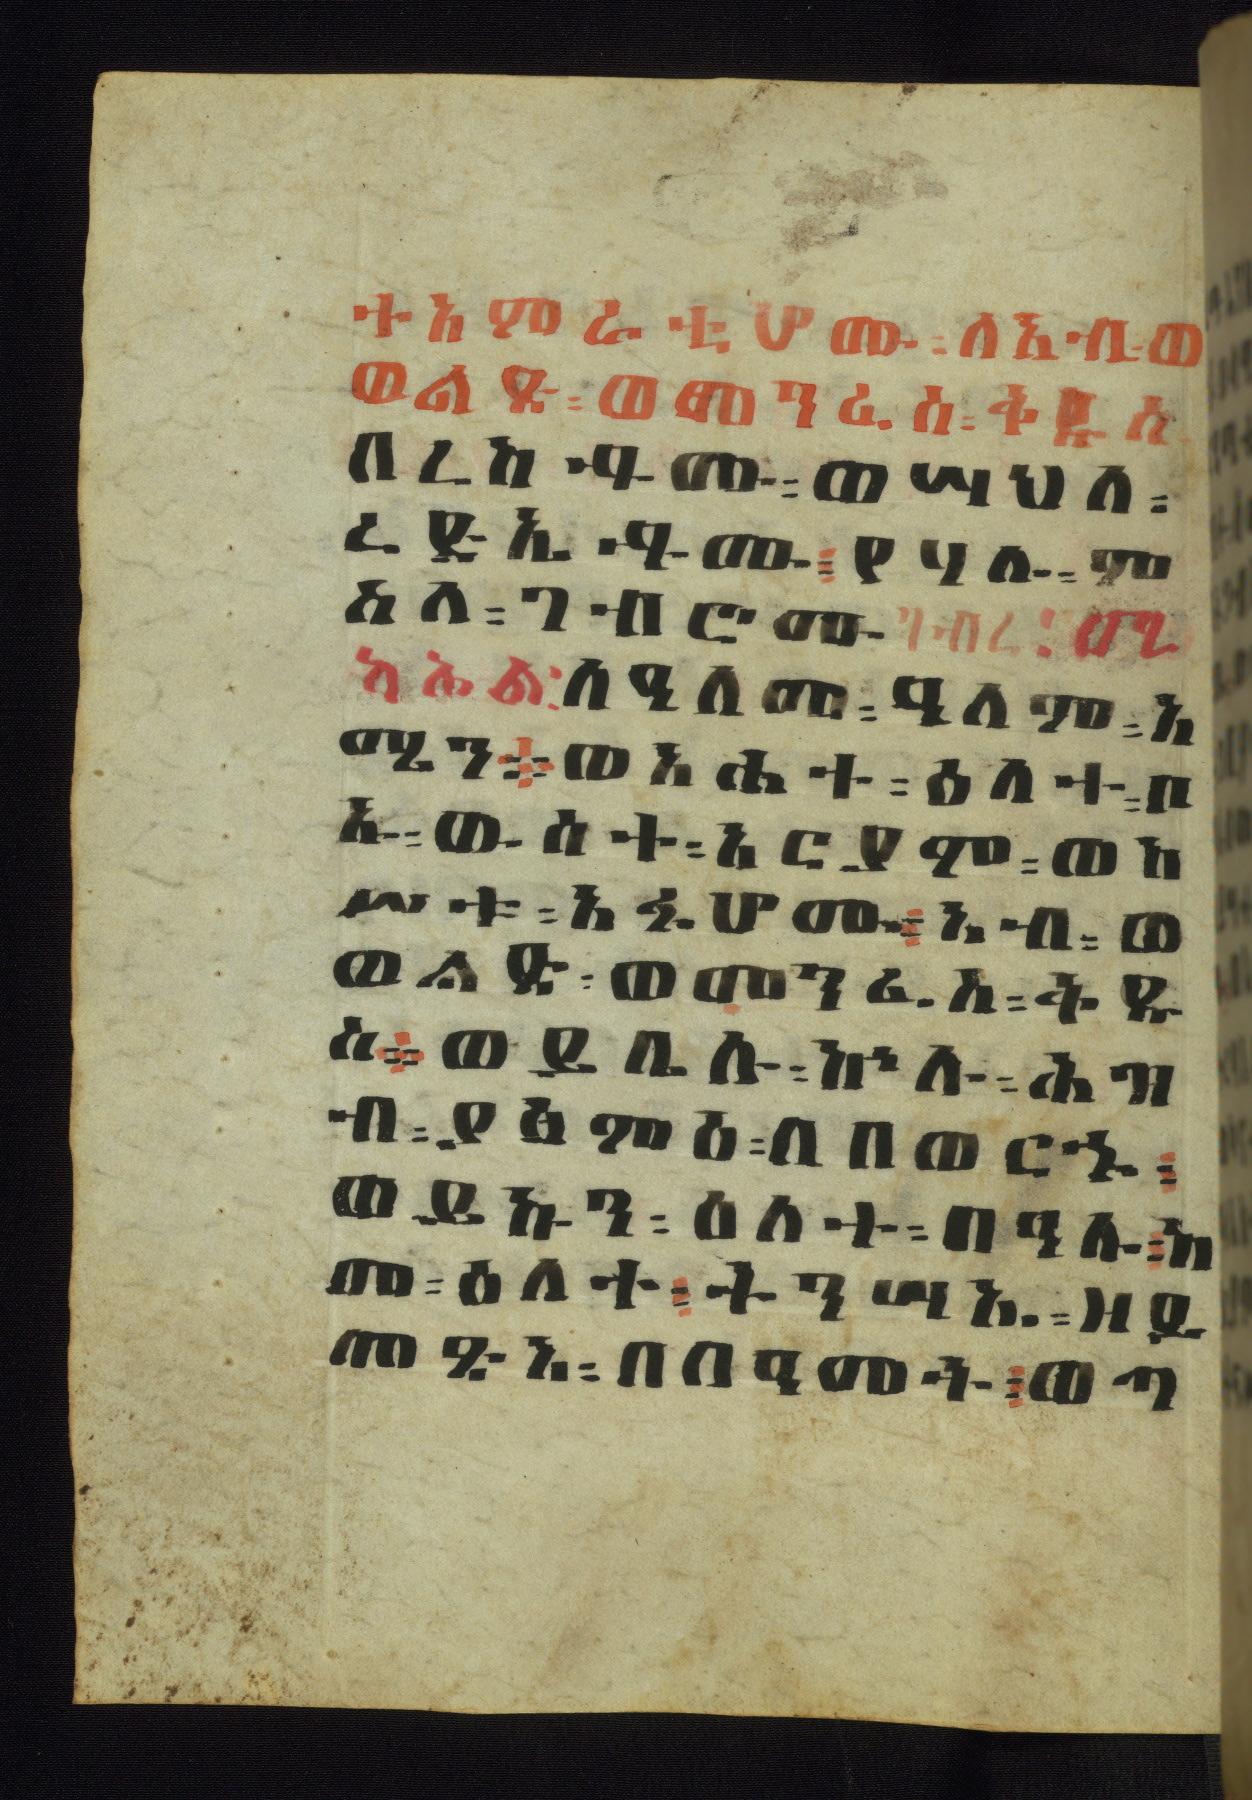 ተአምራቲሆሙ፡ለአብ፡ወ
ወልድ፡ወመንፈስ፡ቅዱስ
በረከቶሙ፡ወሣህለ፡
ረድኤቶሙ፡የሃሉ፡ምስ
አለ፡ገብሮሙ ገብረ፡ ሚ
ካኤል፡ለዓለመ፡ዓለም፡አ
ሜን፡ወአሐተ፡ዕለተ፡በ
እ፡ው፡ስተ፡አርያም፡ወከ
ሠቱ፡አፉሆሙ፡አብ፡ወ
ወልድ፡ወመንፈስ፡ቅዱ
ስ፡ወይቤሉ፡ኵሉ፡ሕዝ
ብ፡ያፅምዕ፡ለበወርኁ፡
ወይኩን፡ዕለተ፡በዓሉ፡ከ
መ፡ዕለተ፡ትንሣኤ፡ዘይ
መጽእ፡በበዓመት፡ወጣ